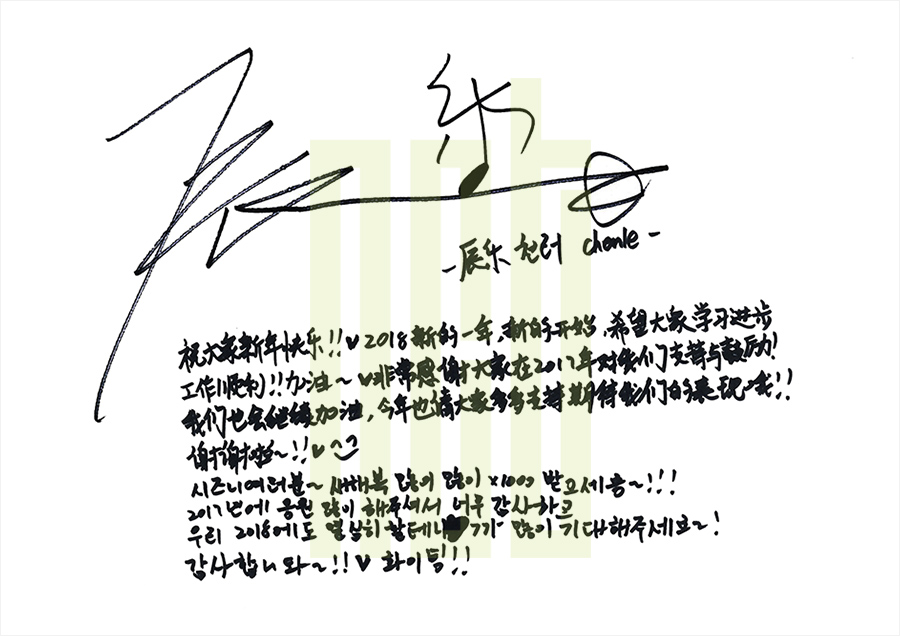 辰乐
-辰乐 천러 chenle-
祝大家新年快乐!!♥2018新的一年,新的开始,希望大家学习进步
工作顺利!!加油~♥非常感谢大家在2017年对我们支持与鼓励!
我们也会继续加油,今年也请大家多多支持期待我们的表现哦!!
谢谢啦~!!♥^^
시즈니여러분~ 새해복 많이 많이 x1000 받으세용~!!!
2017년에 응원 많이 해주셔서 너무 감사하고
우리 2018에도 열심히 할테니 많이 기대해주세요~!
감사합니와~!!♥ 화이팅!!